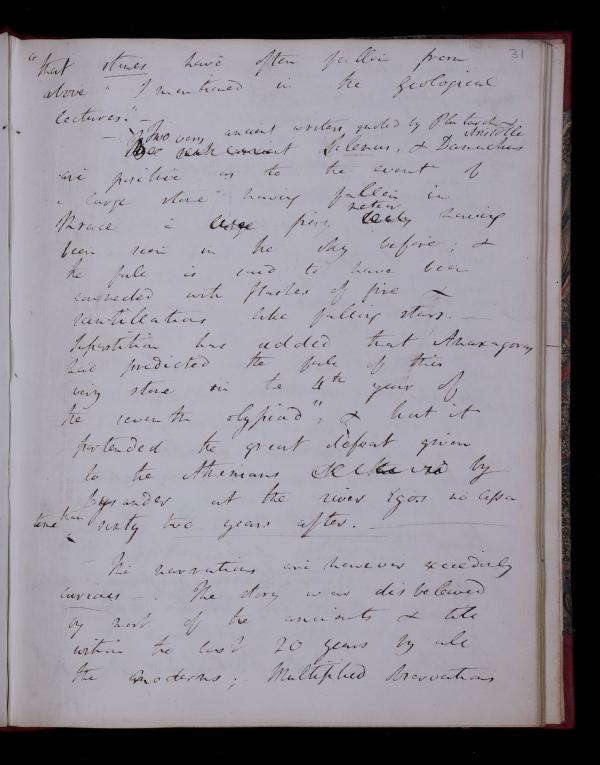 31
"that stones have often fallen from
above" I mentioned in the geological
lectures." —
— Two very ancient writers, quoted by Plutarch & Aristotle
Silenus, & Damachus
are positive as to the event of
a large stone" having fallen in
Thrace a fiery meteor having
been seen in the sky before; &
the fall is said to have been
connected with flashes of fire &
scintillations like falling stars. —
Superstition has added that Anaxagoras
had predicted the fall of this
very stone in the 4th year of
the seventh olypiad"; & that it
portended the great defeat given
to the Athenians by
Lysander at the river Egos
more than sixty two years after. —
— The narrations are however exceedingly
curious —. The story was disbelieved
by most of the ancients & till
within the last 20 years by all
the moderns; Multiplied observations